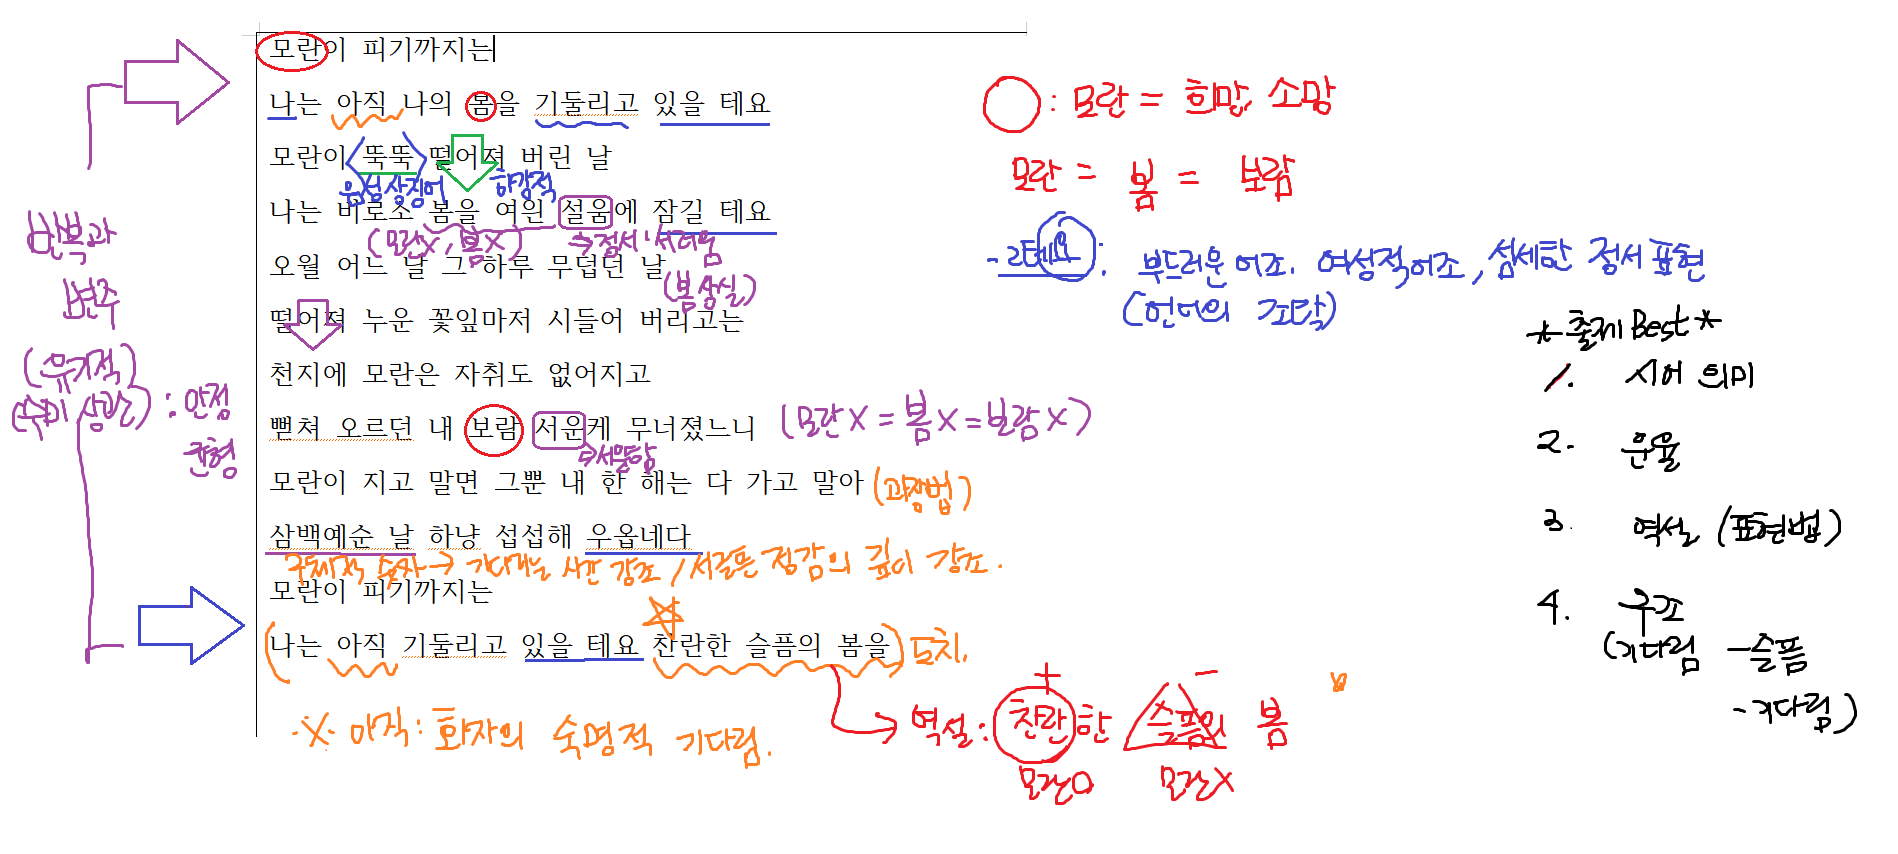 모란이 피기까지는
나는 아직 나의 봄을 기둘리고 있을 테요
모란이 뚝뚝 떨어져 버린 날
음성상징어
하강적
나는 비로소 봄을 여읜 설움에 잠길 테요
(모란X, 봄X) → 정서: 서러움
(봄 상실)
오월 어느 날 그 하루 무덥던 날
떨어져 누운 꽃잎마저 시들어 버리고는
천지에 모란은 자취도 없어지고
뻗쳐 오르던 내 보람 서운케 무너졌느니
(모란X = 봄X = 보람X)
모란이 지고 말면 그뿐 내 한 해는 다 가고 말아
(과장법)
삼백예순 날 하냥 섭섭해 우옵네다
구체적 숫자 → 기다리는 시간 강조 / 서글픈 정감의 깊이 강조.
모란이 피기까지는
나는 아직 기둘리고 있을 테요 찬란한 슬픔의 봄을
도치.
※ 아직: 화자의 숙명적 기다림.
역설: 찬란한 슬픔의 봄
+ -
모란O 모란X
반복과
변주
(유기적
수미상관) : 안정
균형
○ : 모란 = 희망, 소망
모란 = 봄 = 보람
-ㄹ테요 : 부드러운 어조. 여성적 어조, 섬세한 정서 표현
(언어의 조탁)
*출제 Best*
1. 시어 의미
2. 운율
3. 역설 (표현법)
4. 구조
(기다림 - 슬픔
- 기다림)